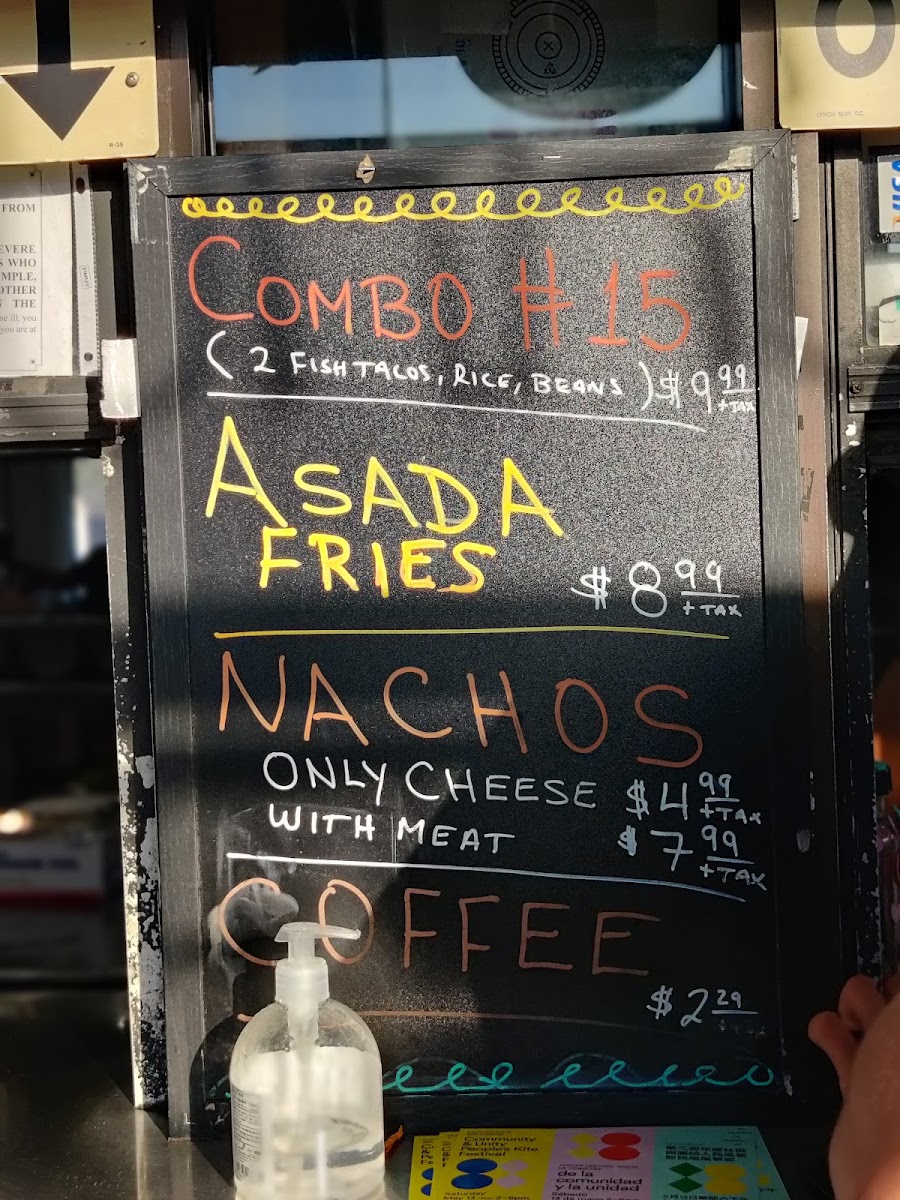 R-35
LYNCH SIGN CO.
FROM
EVERE
S WHO
MPLE,
OTHER
THE
ne ill, you
you are at
COMBO #15
(2 FISH TACOS, RICE, BEANS) $9 99
+TAX
ASADA
FRIES
$8 99
+TAX
NACHOS
ONLY CHEESE $4 99
+TAX
WITH MEAT $7 99
+TAX
COFFEE
$2 29
Community
& Unity
People's Kite
Festival
Saturday
de la
comunidad
y la unidad
Sábado